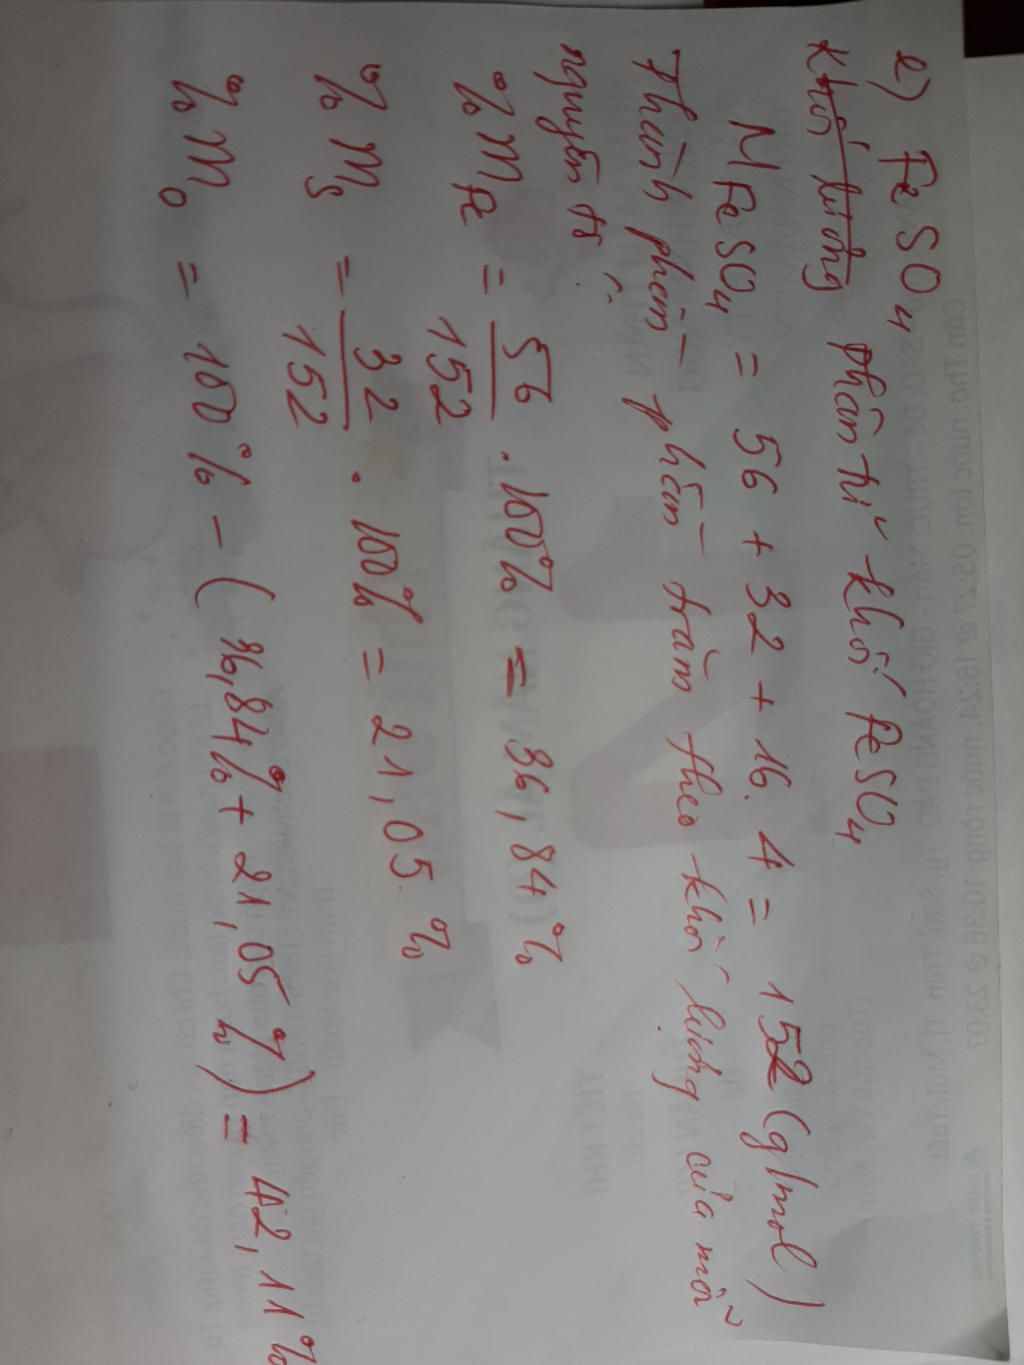 e) FeSO4
khối lượng phân tử khối FeSO4
M FeSO4 = 56 + 32 + 16. 4 = 152 (g/mol)
Thành phần phần trăm theo khối lượng của mỗi
nguyên tố.
%m Fe = 56/152 . 100% = 36,84%
%m S = 32/152 . 100% = 21,05 %
%m O = 100% - (36,84% + 21,05%) = 42,11%